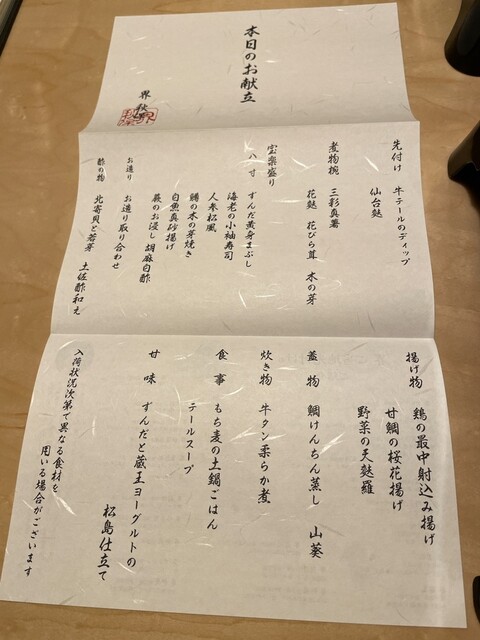 本日のお献立
界 秋保
先付け 牛テールのディップ
仙台麩
煮物椀 三彩真薯
花麩 花びら茸 木の芽
宝楽盛り
八寸 ずんだ黄身まぶし
海老の小袖寿司
人参松風
鰆の木の芽焼き
白魚真砂揚げ
蕨のお浸し 胡麻白酢
お造り お造り取り合わせ
酢の物 北寄貝と若芽 土佐酢和え
揚げ物 鶏の最中射込み揚げ
甘鯛の桜花揚げ
野菜の天麩羅
蓋物 鯛けんちん蒸し 山葵
炊き物 牛タン柔らか煮
食事 もち麦の土鍋ごはん
テールスープ
甘味 ずんだと蔵王ヨーグルトの
松島仕立て
入荷状況次第で異なる食材を
用いる場合がございます